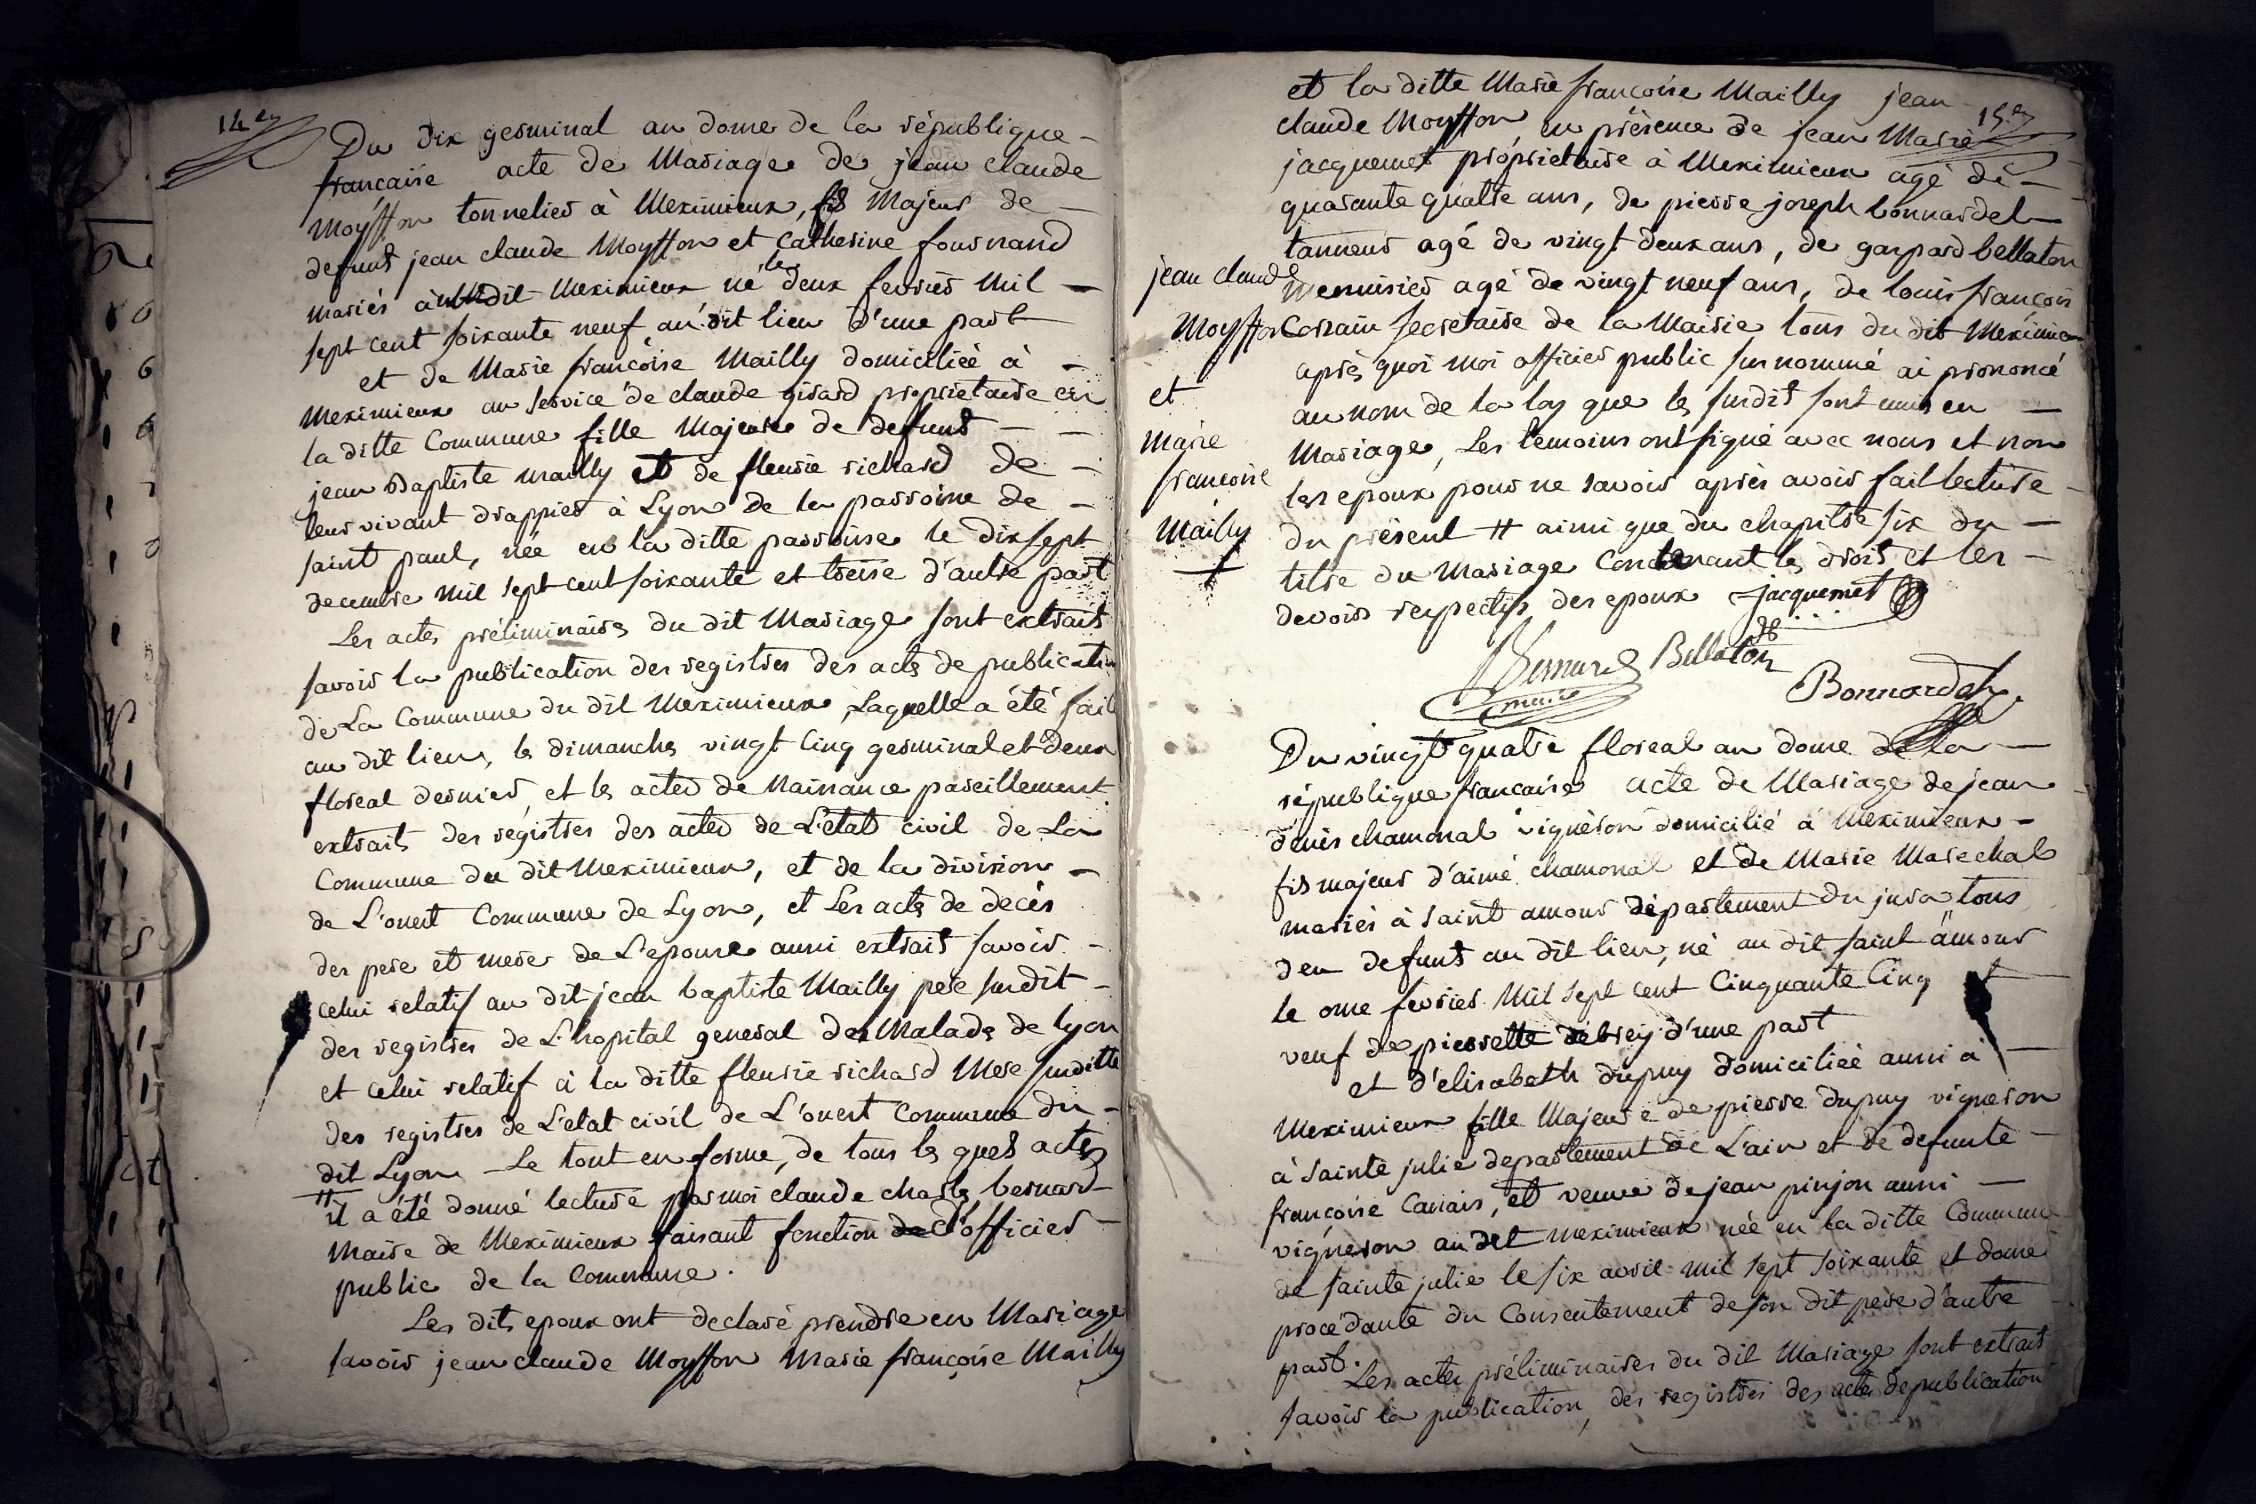 14.e
Du dix germinal an douze de la république
francaise acte de Mariage de jean claude
Moyffon tonnelier à Meximieux, fils Majeur de
defunts jean claude Moyffon et Catherine fournand
mariés audit Meximieux né le deux fevrier Mil
sept cent soixante neuf au dit lieu d'une part
et de Marie francóise Mailly domiciliéé à
Meximieux au service de claude girard proprietaire en
la ditte Commune fille Majeure de defunt
jean Baptiste mailly et de fleurie richard de
leur vivant drappier à Lyon de la parroisse de
saint paul, née en la ditte parroisse le dix sept
decembre mil sept cent soixante et treise d'autre part
Les actes préliminaires du dit Mariage sont extraits
savoir la publication des registres des actes de publication
de La Commune du dit Meximieux, Laquelle a été fait
au dit lieu, les dimanches vingt cinq germinal et deux
floreal dernier, et les actes de Naissance pareillement
extraits des régistres des actes de L'etat civil de La
Commune du dit Meximieux, et de la division
de L'ouest Commune de Lyon, et Les actes de decés
des pere et mere de L'epouse aussi extrait savoir
celui relatif au dit jean baptiste Mailly pere susdit
des registres de L'hopital general des Malades de lyon
et celui relatif à la ditte fleurie richard Mere susditte
des registres de L'etat civil de L'ouest Commune du
dit Lyon Le tout en forme, de tous les quels actes
il a été donné lecture par moi claude charles bernard
Maire de Meximieux faisant fonction de d'officier
public de la Commune.
Les dits epoux ont declaré prendre en Mariage
savoir jean claude Moyffon Marie françoise Mailly
et la ditte Marie francoise Mailly jean
15.e
claude Moyffon, en présence de jean Marie
jacquemet propriétaire à Meximieux agé de
quarante quatre ans, de pierre joseph bonnardel
tanneur agé de vingt deux ans, de gaspard bellaton
menuisier agé de vingt neuf ans, de louis françois
Corrain secretaire de la Mairie tous du dit Meximieux
après quoi moi officier public sus nommé ai prononcé
au nom de la loy que les susdits sont unis en
Mariage, Les temoins ont signé avec nous et non
les epoux pour ne savoir après avoir fait lecture
du présent # ainsi que du chapitre six du
titre du Mariage Contenant les droits et les
devoirs respectifs des epoux
jean claude
Moyffon
et
Marie
francoise
Mailly
jacquemet
Bernard Bellaton
maire
Bonnardel
Du vingt quatre floreal an douze de la
république francaise acte de Mariage de jean
denis chamonal vigneron domicilié à Meximieux
fils majeur d'aimé chamonal et de Marie Marechal
mariés à saint amour département du jura tous
deux defunts au dit lieu, né au dit saint amour
le onze fevrier Mil sept cent Cinquante Cinq
veuf de pierrette debrey d'une part
et d'elisabeth dupuy domiciliéé aussi à
Meximieux fille Majeure de pierre dupuy vigneron
à sainte julie departement de L'ain et de defunte
francoise Canais, et veuve de jean pinjon aussi
vigneron au dit meximieux née en la ditte Commune
de sainte julie le six avril mil sept soixante et douze
procédante du Consentement de son dit pere d'autre
part.
Les actes préliminaires du dit Mariage sont extraits
savoir la publication, des registres des actes de publication